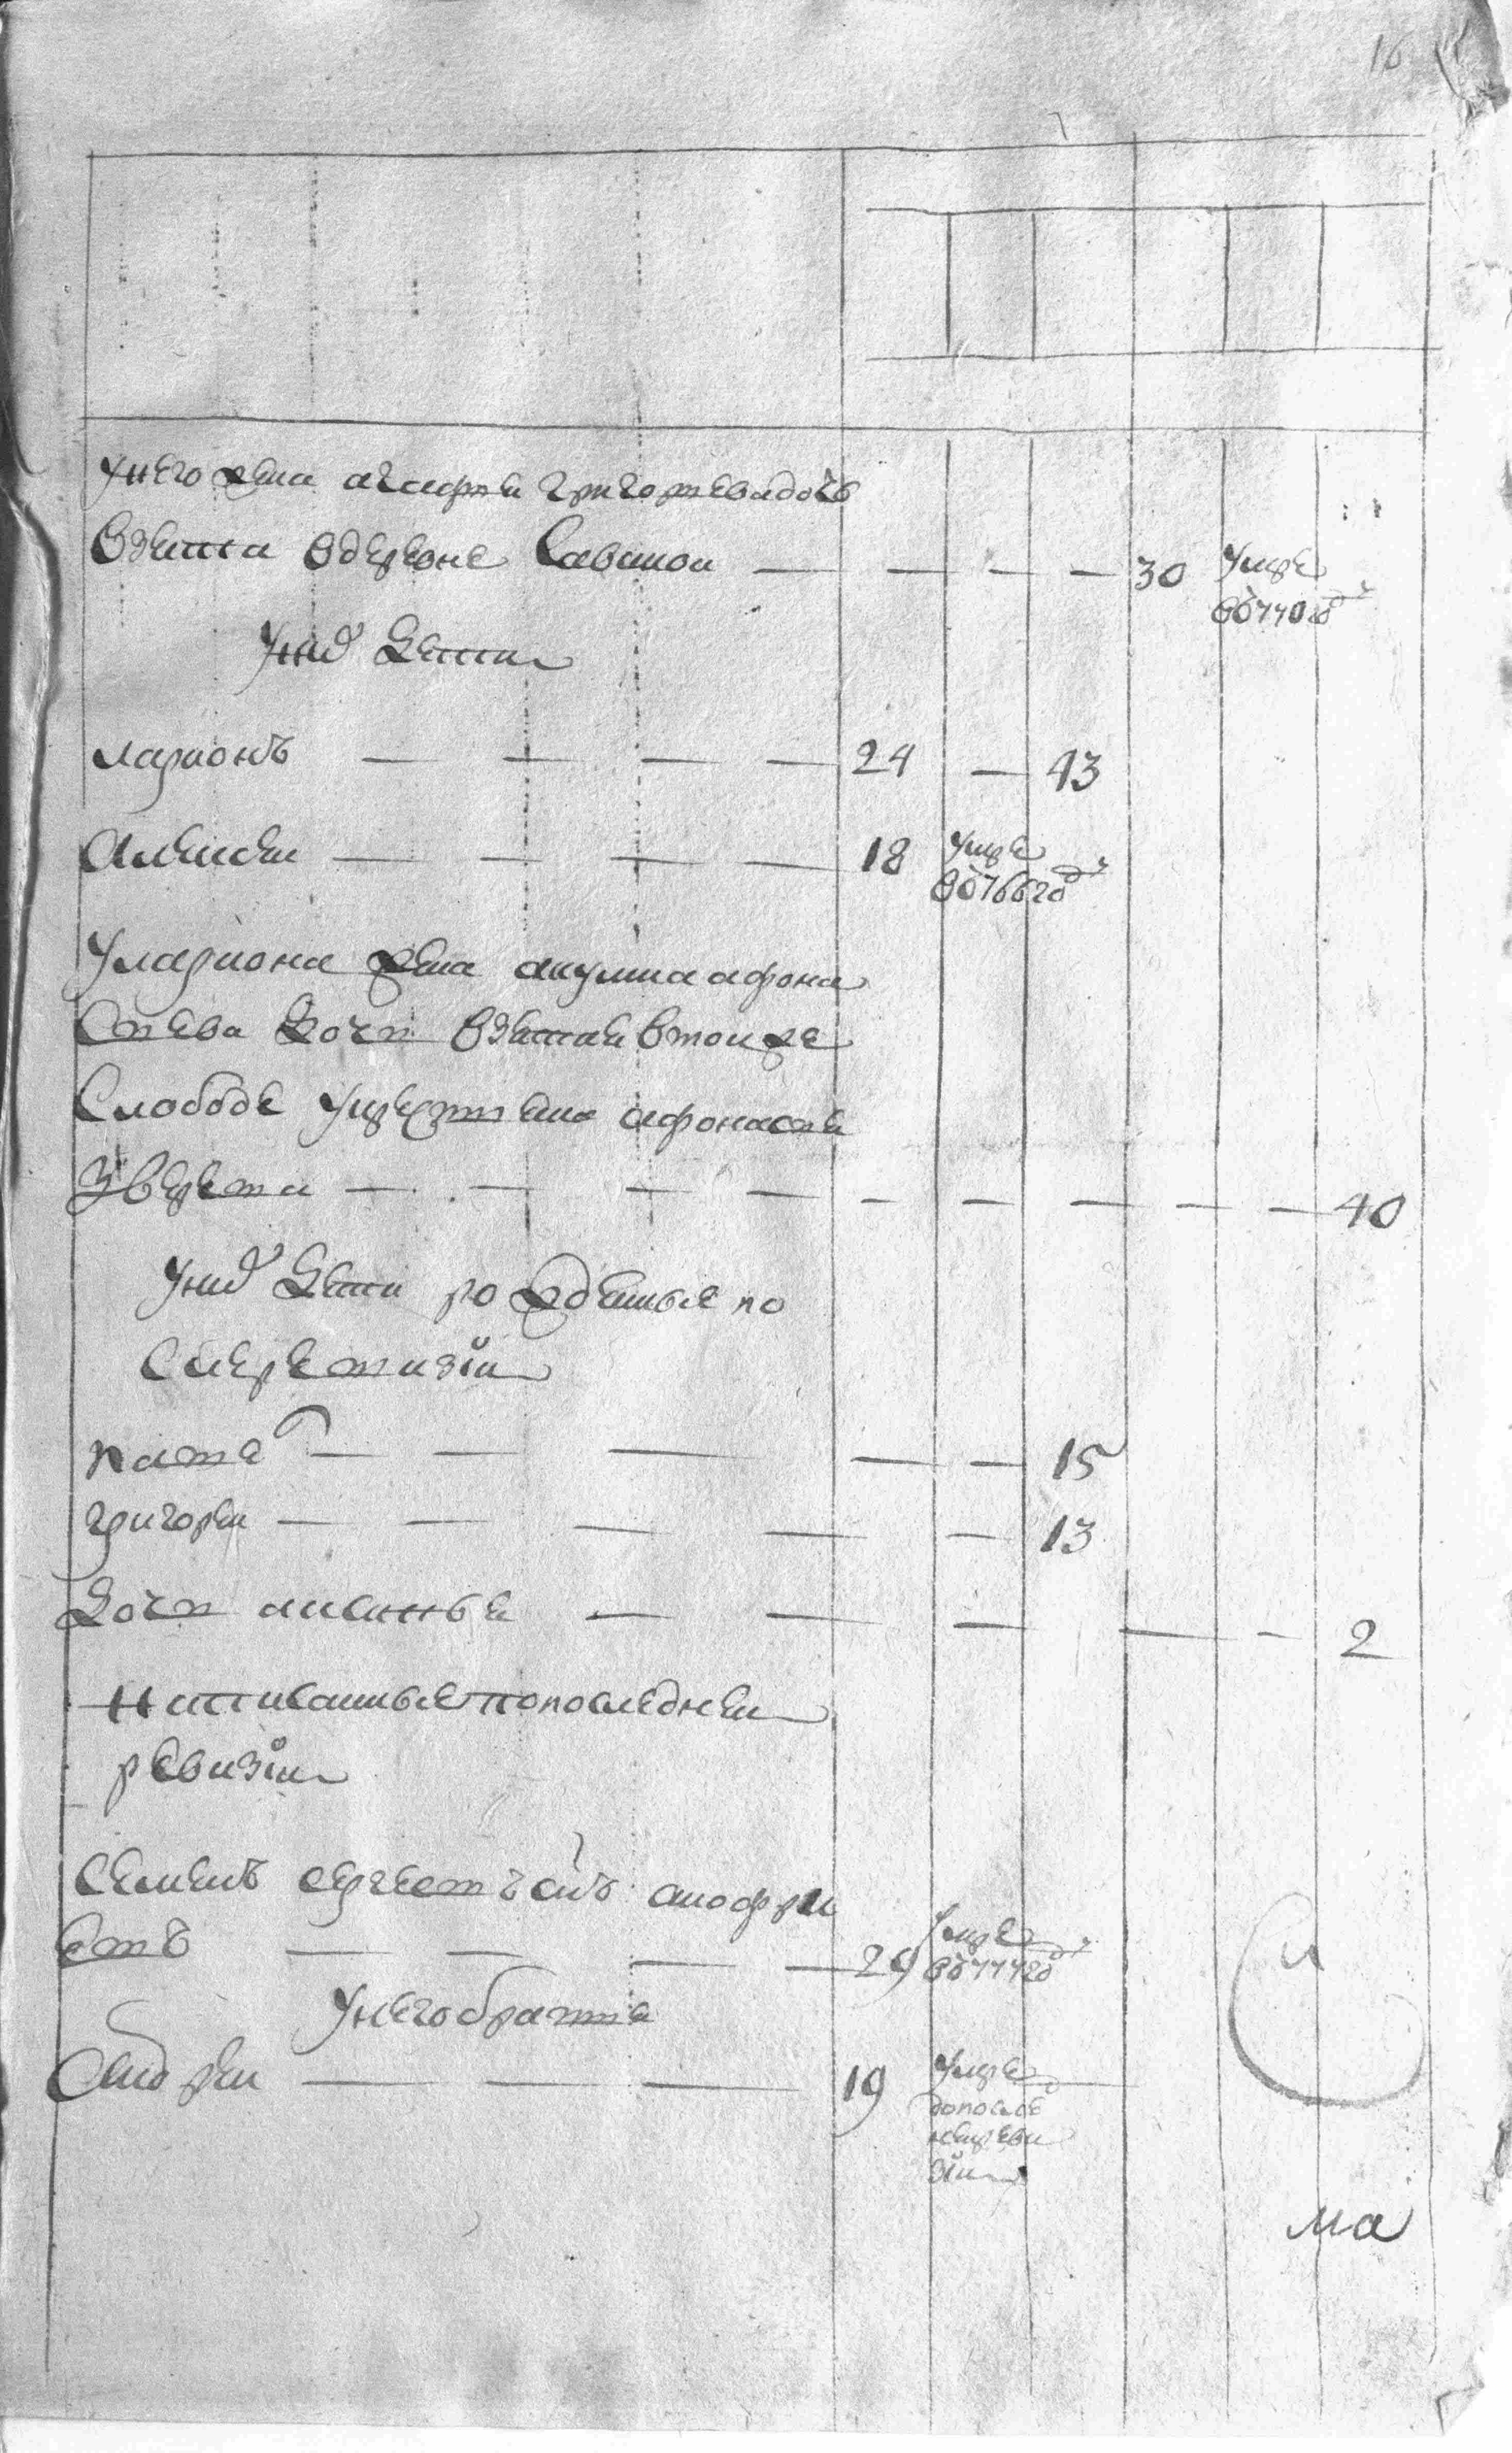 16
у него жена агафья григорьева дочь
взята в деревне Савиной — — — — 30 умре в 1770 году
у них дети
ларионъ — — — — 24 — 43
алексей — — — — 18 умре в 1766 году
у лариона жена акулина афона
сьева дочь взятая в той же
слободе у крестьянина афонасья
зверева — — — — — — — — — 40
у них дети рожденные по
сле ревизии
— — — — — 15
григорей — — — — — 13
дочь аксинья — — — — — 2
написанные по последней
ревизии
семенъ сергеевъ сынъ ануфри
евъ — — — — 29 умре в 1772 году
у него братья
андрей — — — 19 умре
после
ней реви
зии
ма